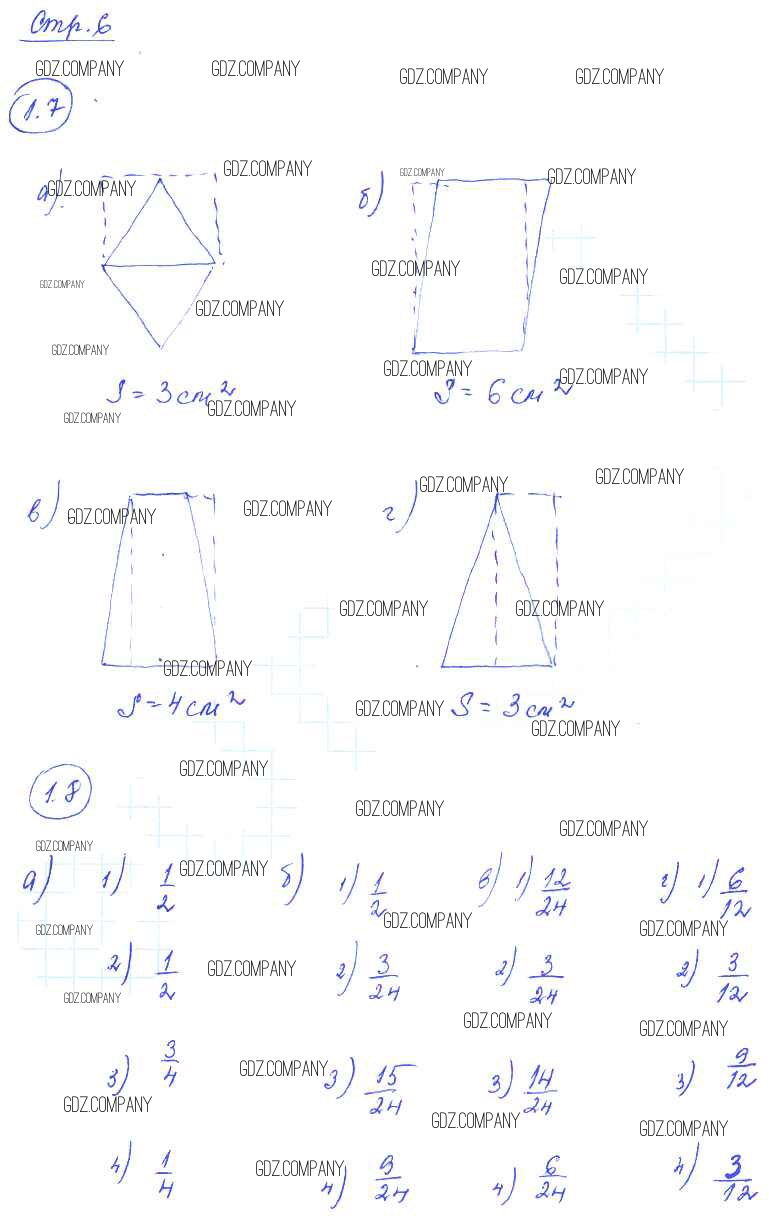 Стр. 6
GDZ.COMPANY GDZ.COMPANY GDZ.COMPANY GDZ.COMPANY
1.7
GDZ.COMPANY GDZ.COMPANY GDZ.COMPANY
а) GDZ.COMPANY б)
GDZ.COMPANY GDZ.COMPANY
GDZ.COMPANY GDZ.COMPANY
GDZ.COMPANY GDZ.COMPANY
GDZ.COMPANY GDZ.COMPANY
S = 3 см² S = 6 см²
GDZ.COMPANY GDZ.COMPANY
GDZ.COMPANY GDZ.COMPANY
в) GDZ.COMPANY GDZ.COMPANY г)
GDZ.COMPANY GDZ.COMPANY
GDZ.COMPANY
S = 4 см² GDZ.COMPANY S = 3 см²
GDZ.COMPANY
GDZ.COMPANY
1.8
GDZ.COMPANY
GDZ.COMPANY GDZ.COMPANY
а) 1) 1/2 GDZ.COMPANY б) 1) 1/2 в) 1) 12/24 г) 1) 6/12
GDZ.COMPANY GDZ.COMPANY GDZ.COMPANY
2) 1/2 GDZ.COMPANY 2) 3/24 2) 3/24 2) 3/12
GDZ.COMPANY GDZ.COMPANY GDZ.COMPANY
3) 3/4 GDZ.COMPANY 3) 15/24 3) 14/24 3) 9/12
GDZ.COMPANY GDZ.COMPANY GDZ.COMPANY
4) 1/4 GDZ.COMPANY 4) 9/24 4) 6/24 4) 3/12